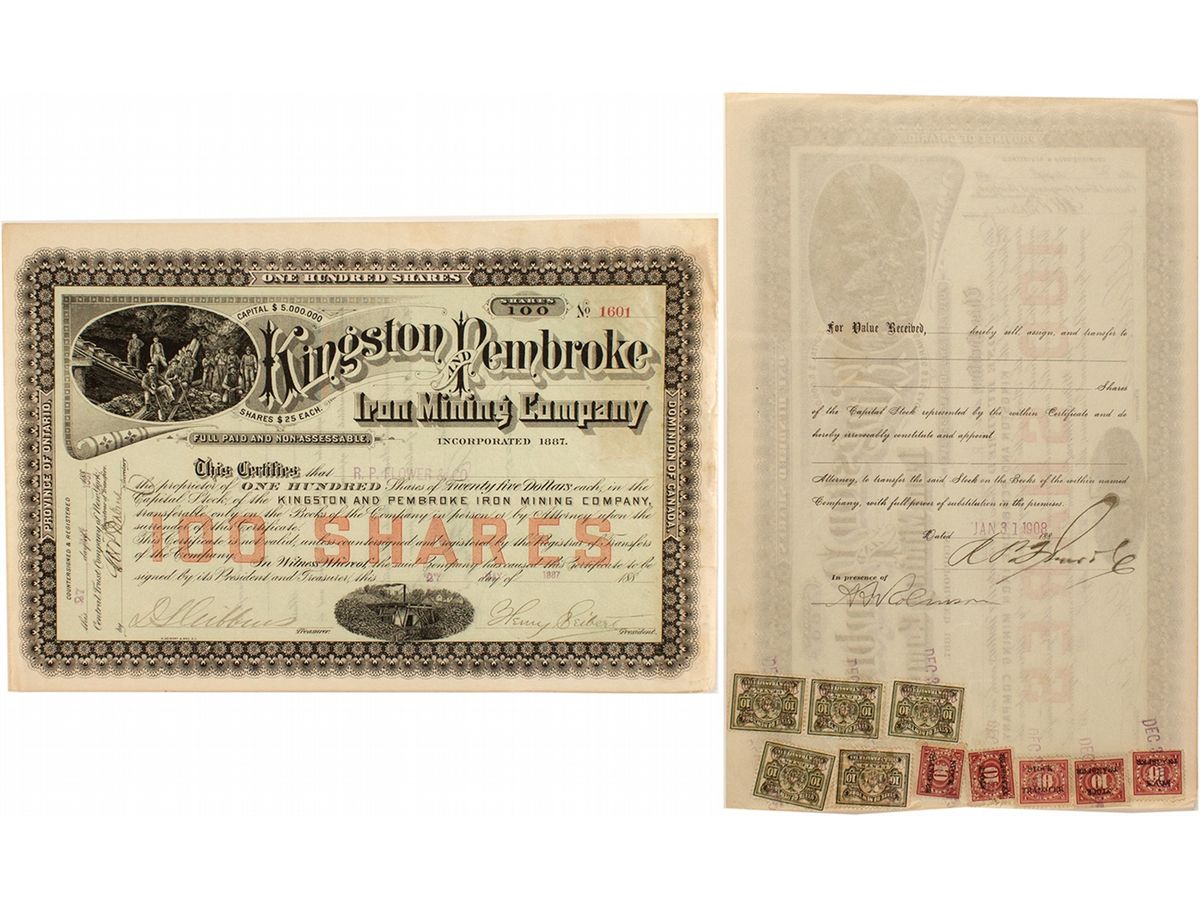 ONE HUNDRED SHARES
PROVINCE OF ONTARIO
DOMINION OF CANADA
CAPITAL $ 5.000.000
SHARES
100
No 1601
Kingston AND Pembroke
Iron Mining Company
SHARES $ 25 EACH.
FULL PAID AND NON ASSESSABLE
INCORPORATED 1887.
This Certifies that R. P. FLOWER & CO
the proprietor of ONE HUNDRED Shares of Twenty five Dollars each, in the
Capital Stock of the KINGSTON AND PEMBROKE IRON MINING COMPANY,
transferable only on the Books of the Company in person or by Attorney upon the
surrender of this Certificate.
100 SHARES
This Certificate is not valid, unless countersigned and registered by the Registrar of Transfers
of the Company.
In Witness Whereof the said Company has caused this Certificate to be
signed by its President and Treasurer, this 27 day of 1887 188
Treasurer.
Henry Seibert
President.
COUNTERSIGNED & REGISTERED
this 27 day of 188
Central Trust Company of New York,
by
For Value Received, hereby sell, assign, and transfer to
Shares
of the Capital Stock represented by the within Certificate and do
hereby irrevocably constitute and appoint
Attorney, to transfer the said Stock on the Books of the within named
Company, with full power of substitution in the premises.
Dated JAN 31 1908 188
In presence of
DEC
DEC
DEC
10
10
10
10
10
STOCK
TRANSFER